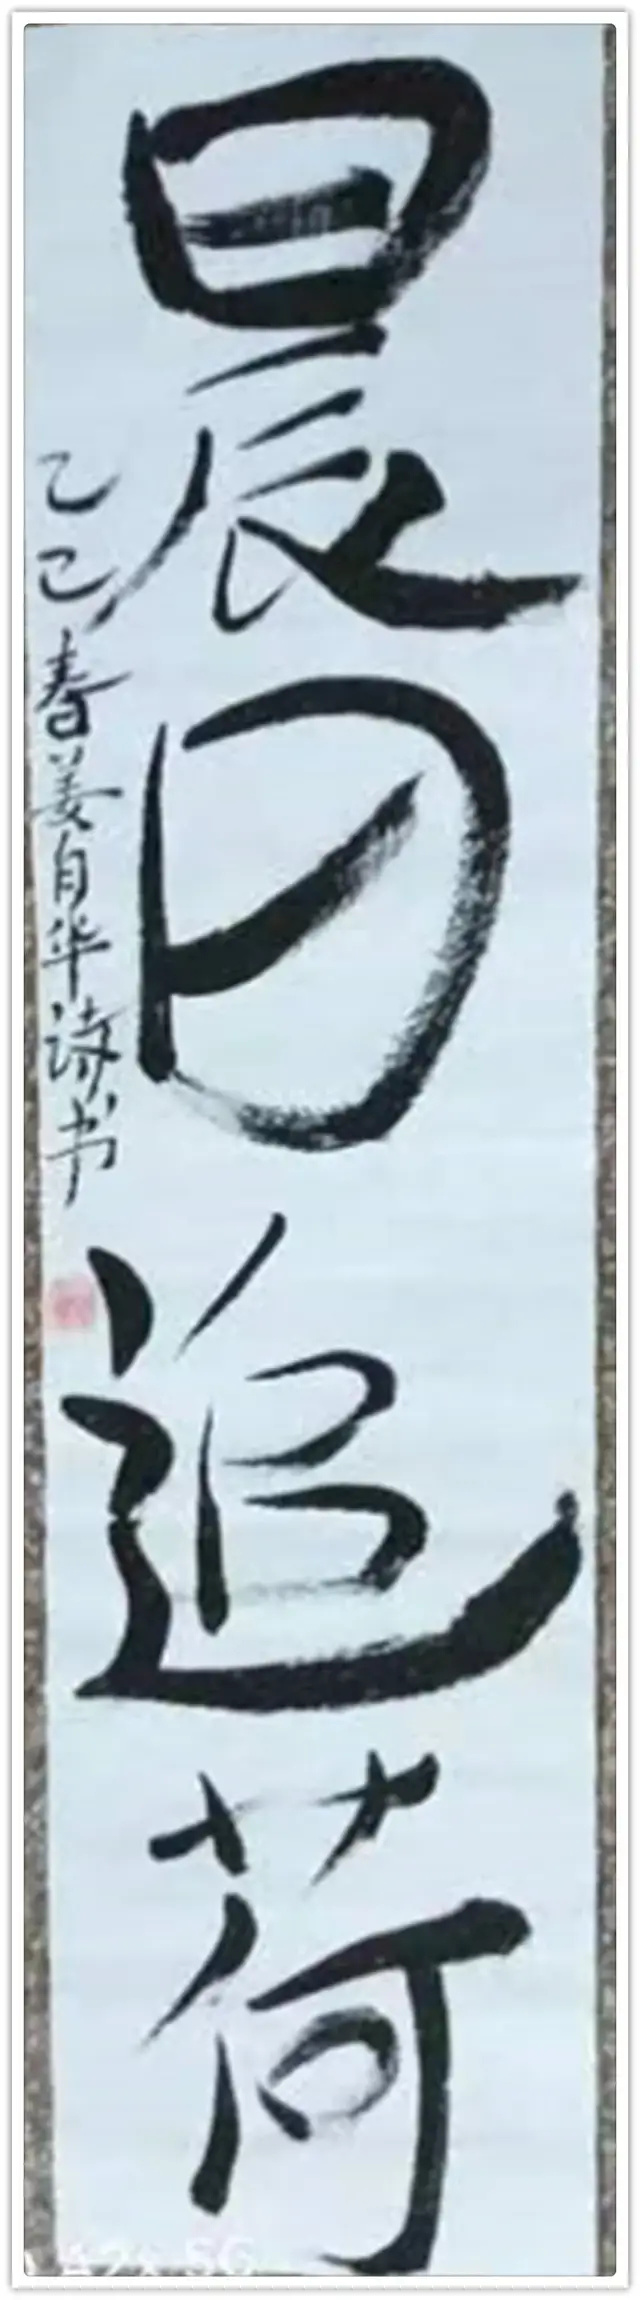 晨日追荷
乙巳春姜自华诗书